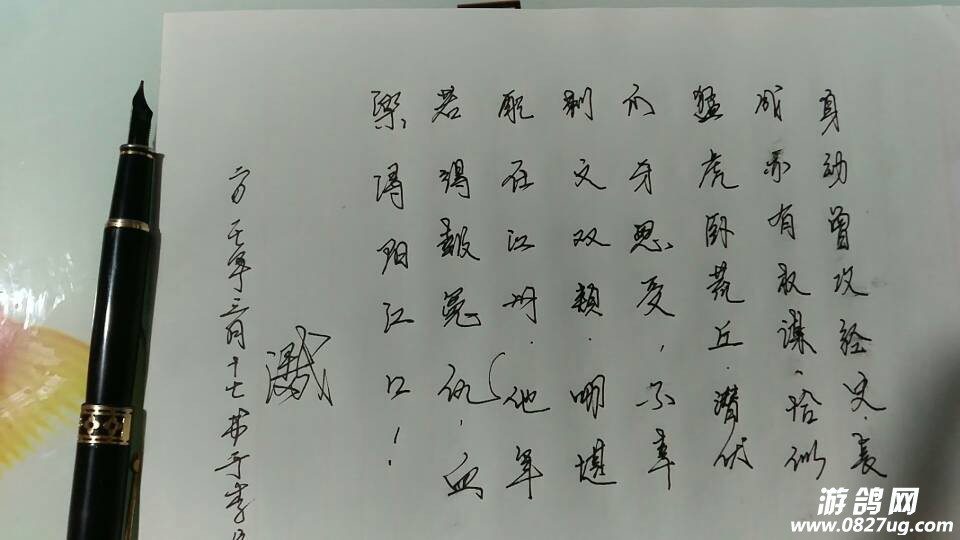 身幼曾攻经史.长
成亦有权谋.恰似
猛虎卧荒丘.潜伏
爪牙忍受,不幸
刺文双颊.哪堪
配在江州.他年
若得报冤仇,血
染浔阳江口!
三月十七
游鸽网
www.0827ug.com